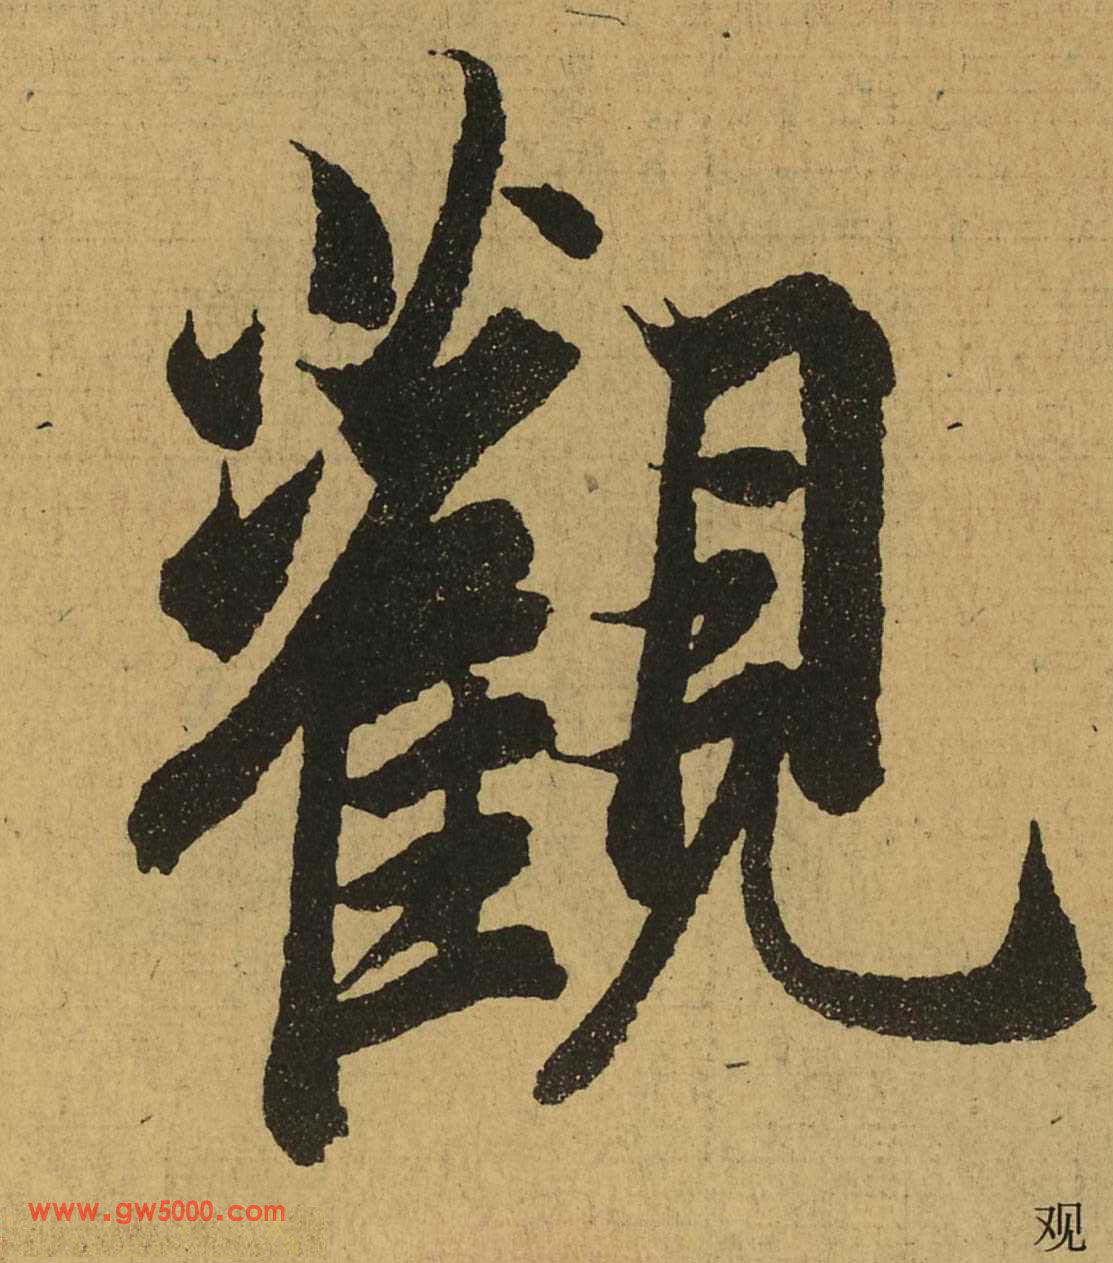 觀
www.gw5000.com
观